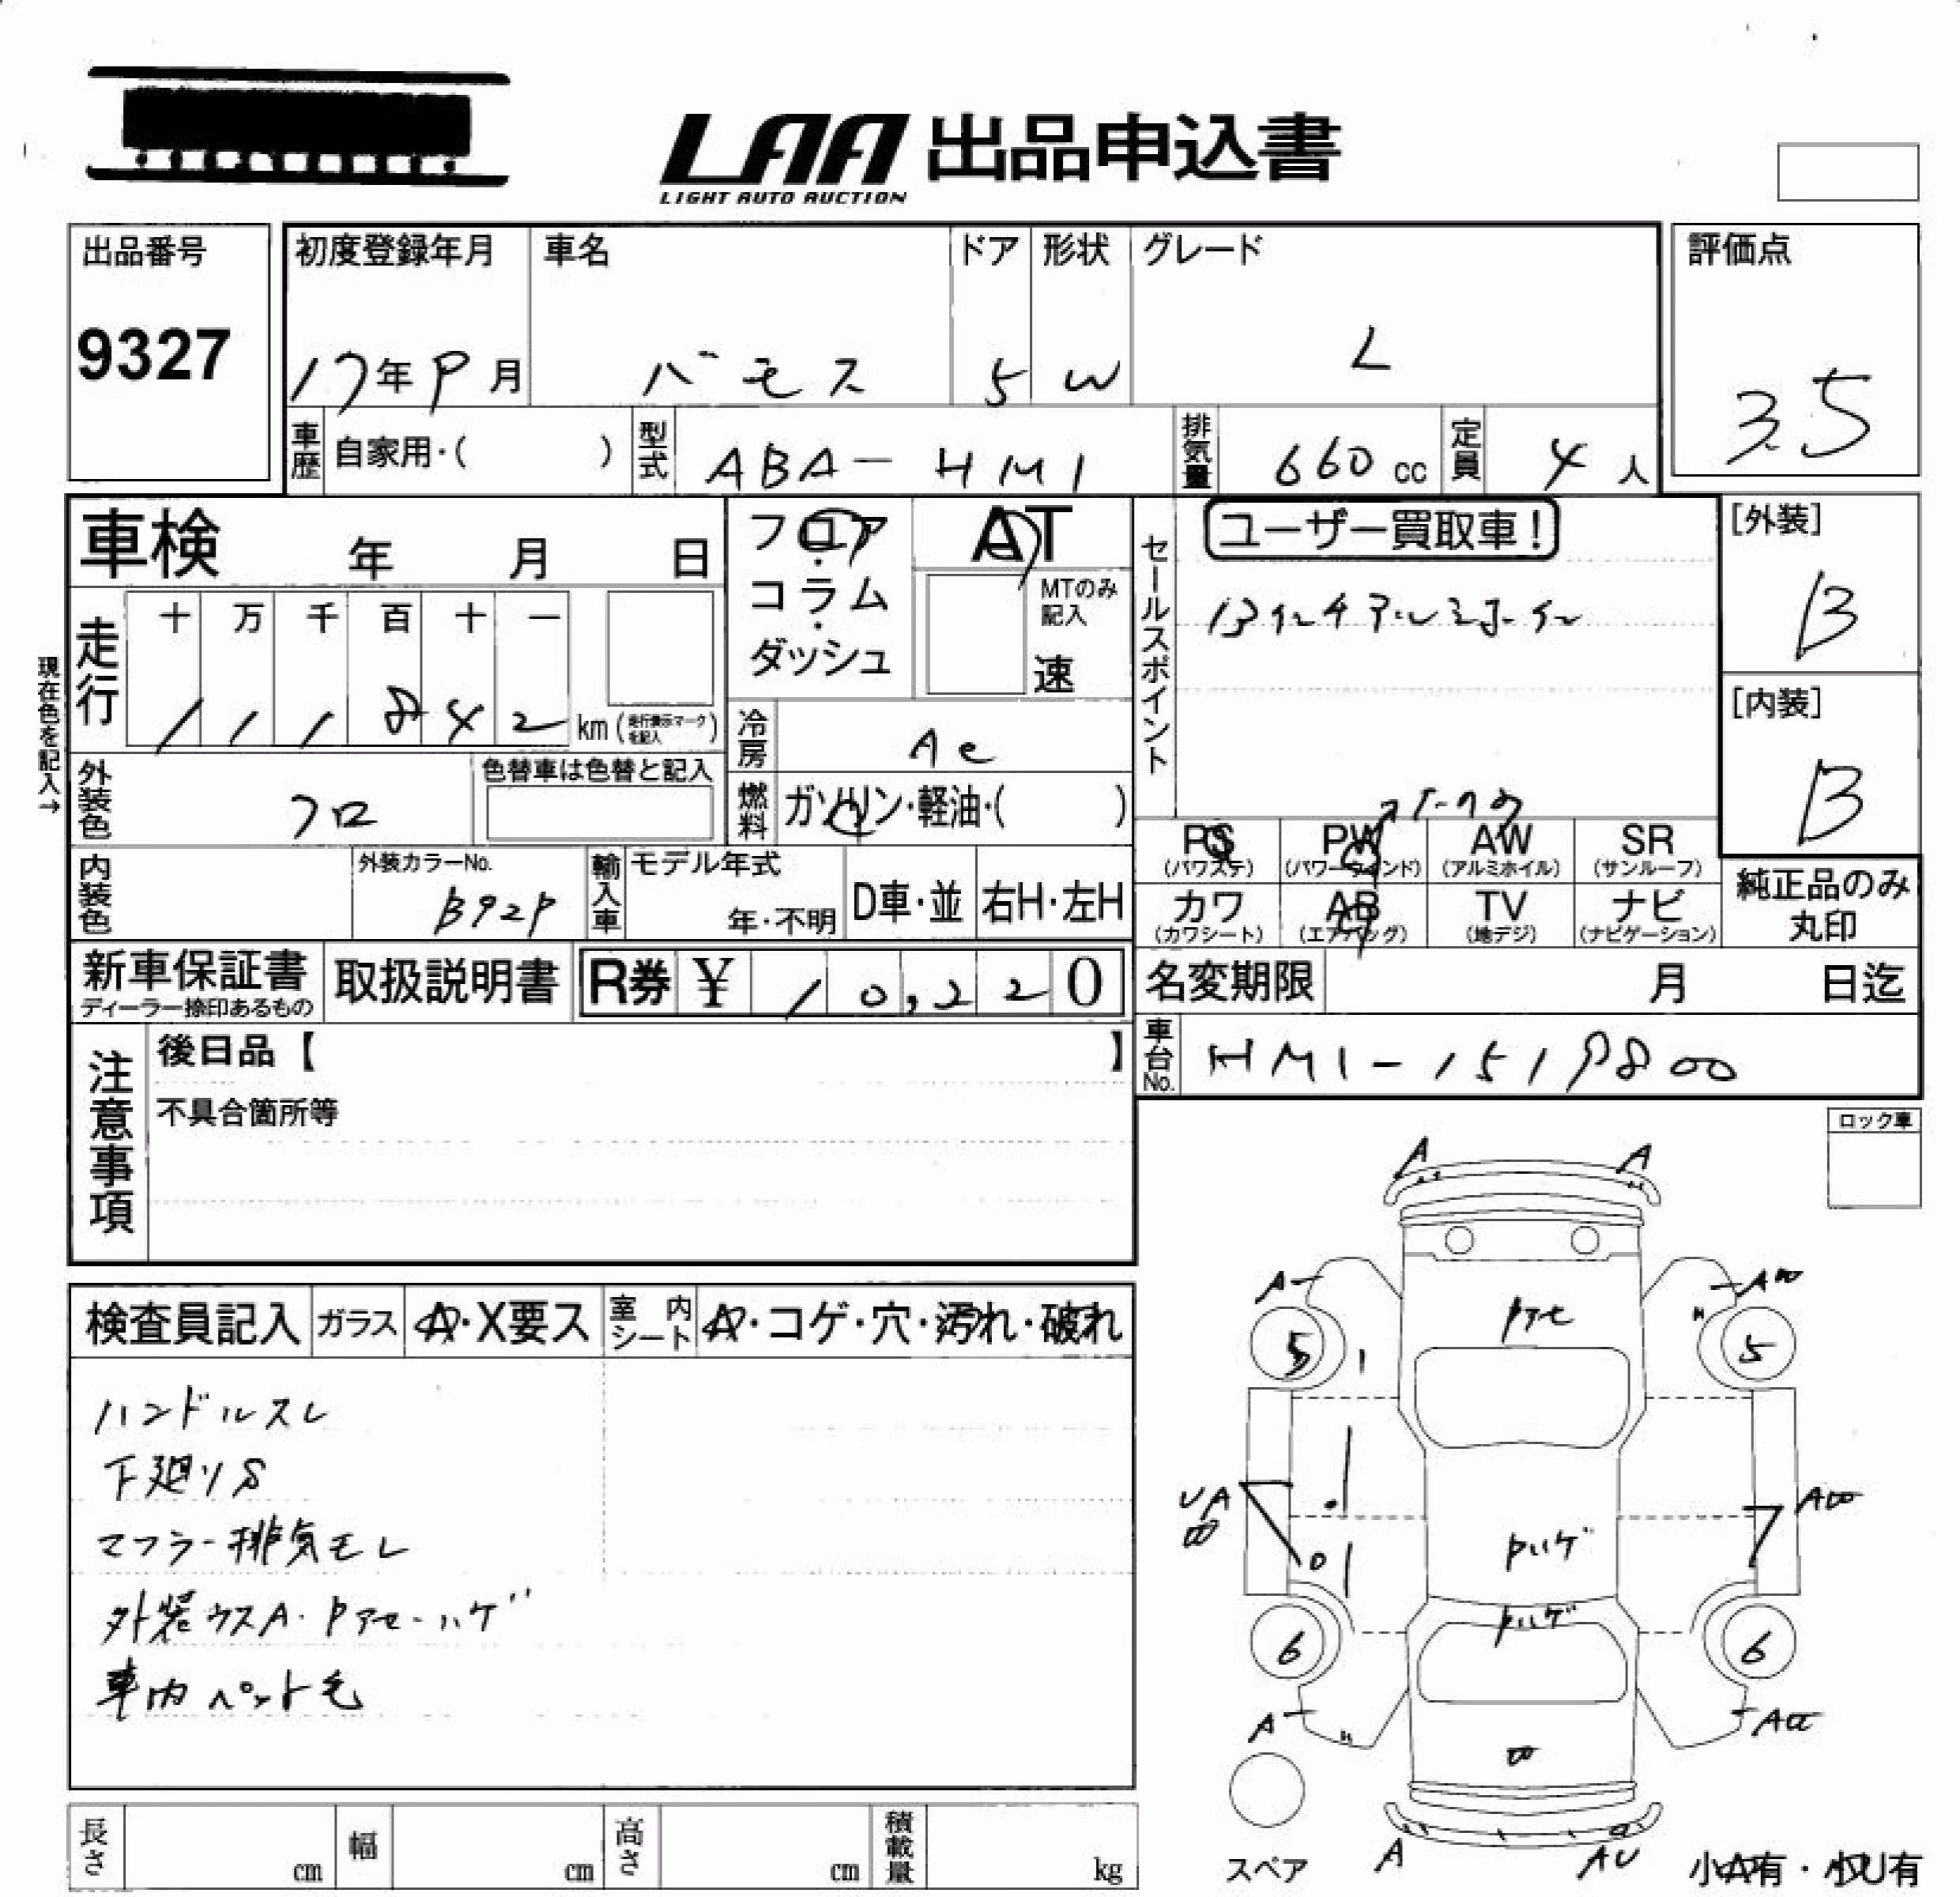 LAA 出品申込書
LIGHT AUTO AUCTION
出品番号
9327
初度登録年月
17年9月
車名
バモス
ドア
5
形状
W
グレード
L
評価点
3.5
車歴
自家用・( )
型式
ABA-HM1
排気量
660 cc
定員
4人
車検 年 月 日
フロア・コラム・ダッシュ
AT
MTのみ記入
速
セールスポイント
ユーザー買取車!
13インチアルミホイル
[外装]
B
[内装]
B
現在色を記入→
走行
十 万 千 百 十 一
1 1 1 8 4 2
km (走行表示マークを記入)
冷房
AC
外装色
クロ
色替車は色替と記入
燃料
ガソリン・軽油・( )
PS (パワステ)
PW (パワーウインド)
AW (アルミホイル)
SR (サンルーフ)
カワ (カワシート)
AB (エアバッグ)
TV (地デジ)
ナビ (ナビゲーション)
純正品のみ丸印
内装色
外装カラーNo.
B92P
輸入車
モデル年式
年・不明
D車・並
右H・左H
新車保証書
ディーラー捺印あるもの
取扱説明書
R券 ¥ 10,220
名変期限 月 日迄
車台No.
HM1-1519800
注意事項
後日品【 】
不具合箇所等
ロック車
検査員記入
ガラス
A・X要ス
室内シート
A・コゲ・穴・汚れ・破れ
ハンドルスレ
下廻りS
マフラー排気モレ
外装ウスA・Pアセ・ハゲ
車内ペット毛
A A
A
Pアセ
5 5
UA
Pハゲ
Pハゲ
6 6
A
A AU
スペア
小A有・小U有
長さ cm
幅 cm
高さ cm
積載量 kg